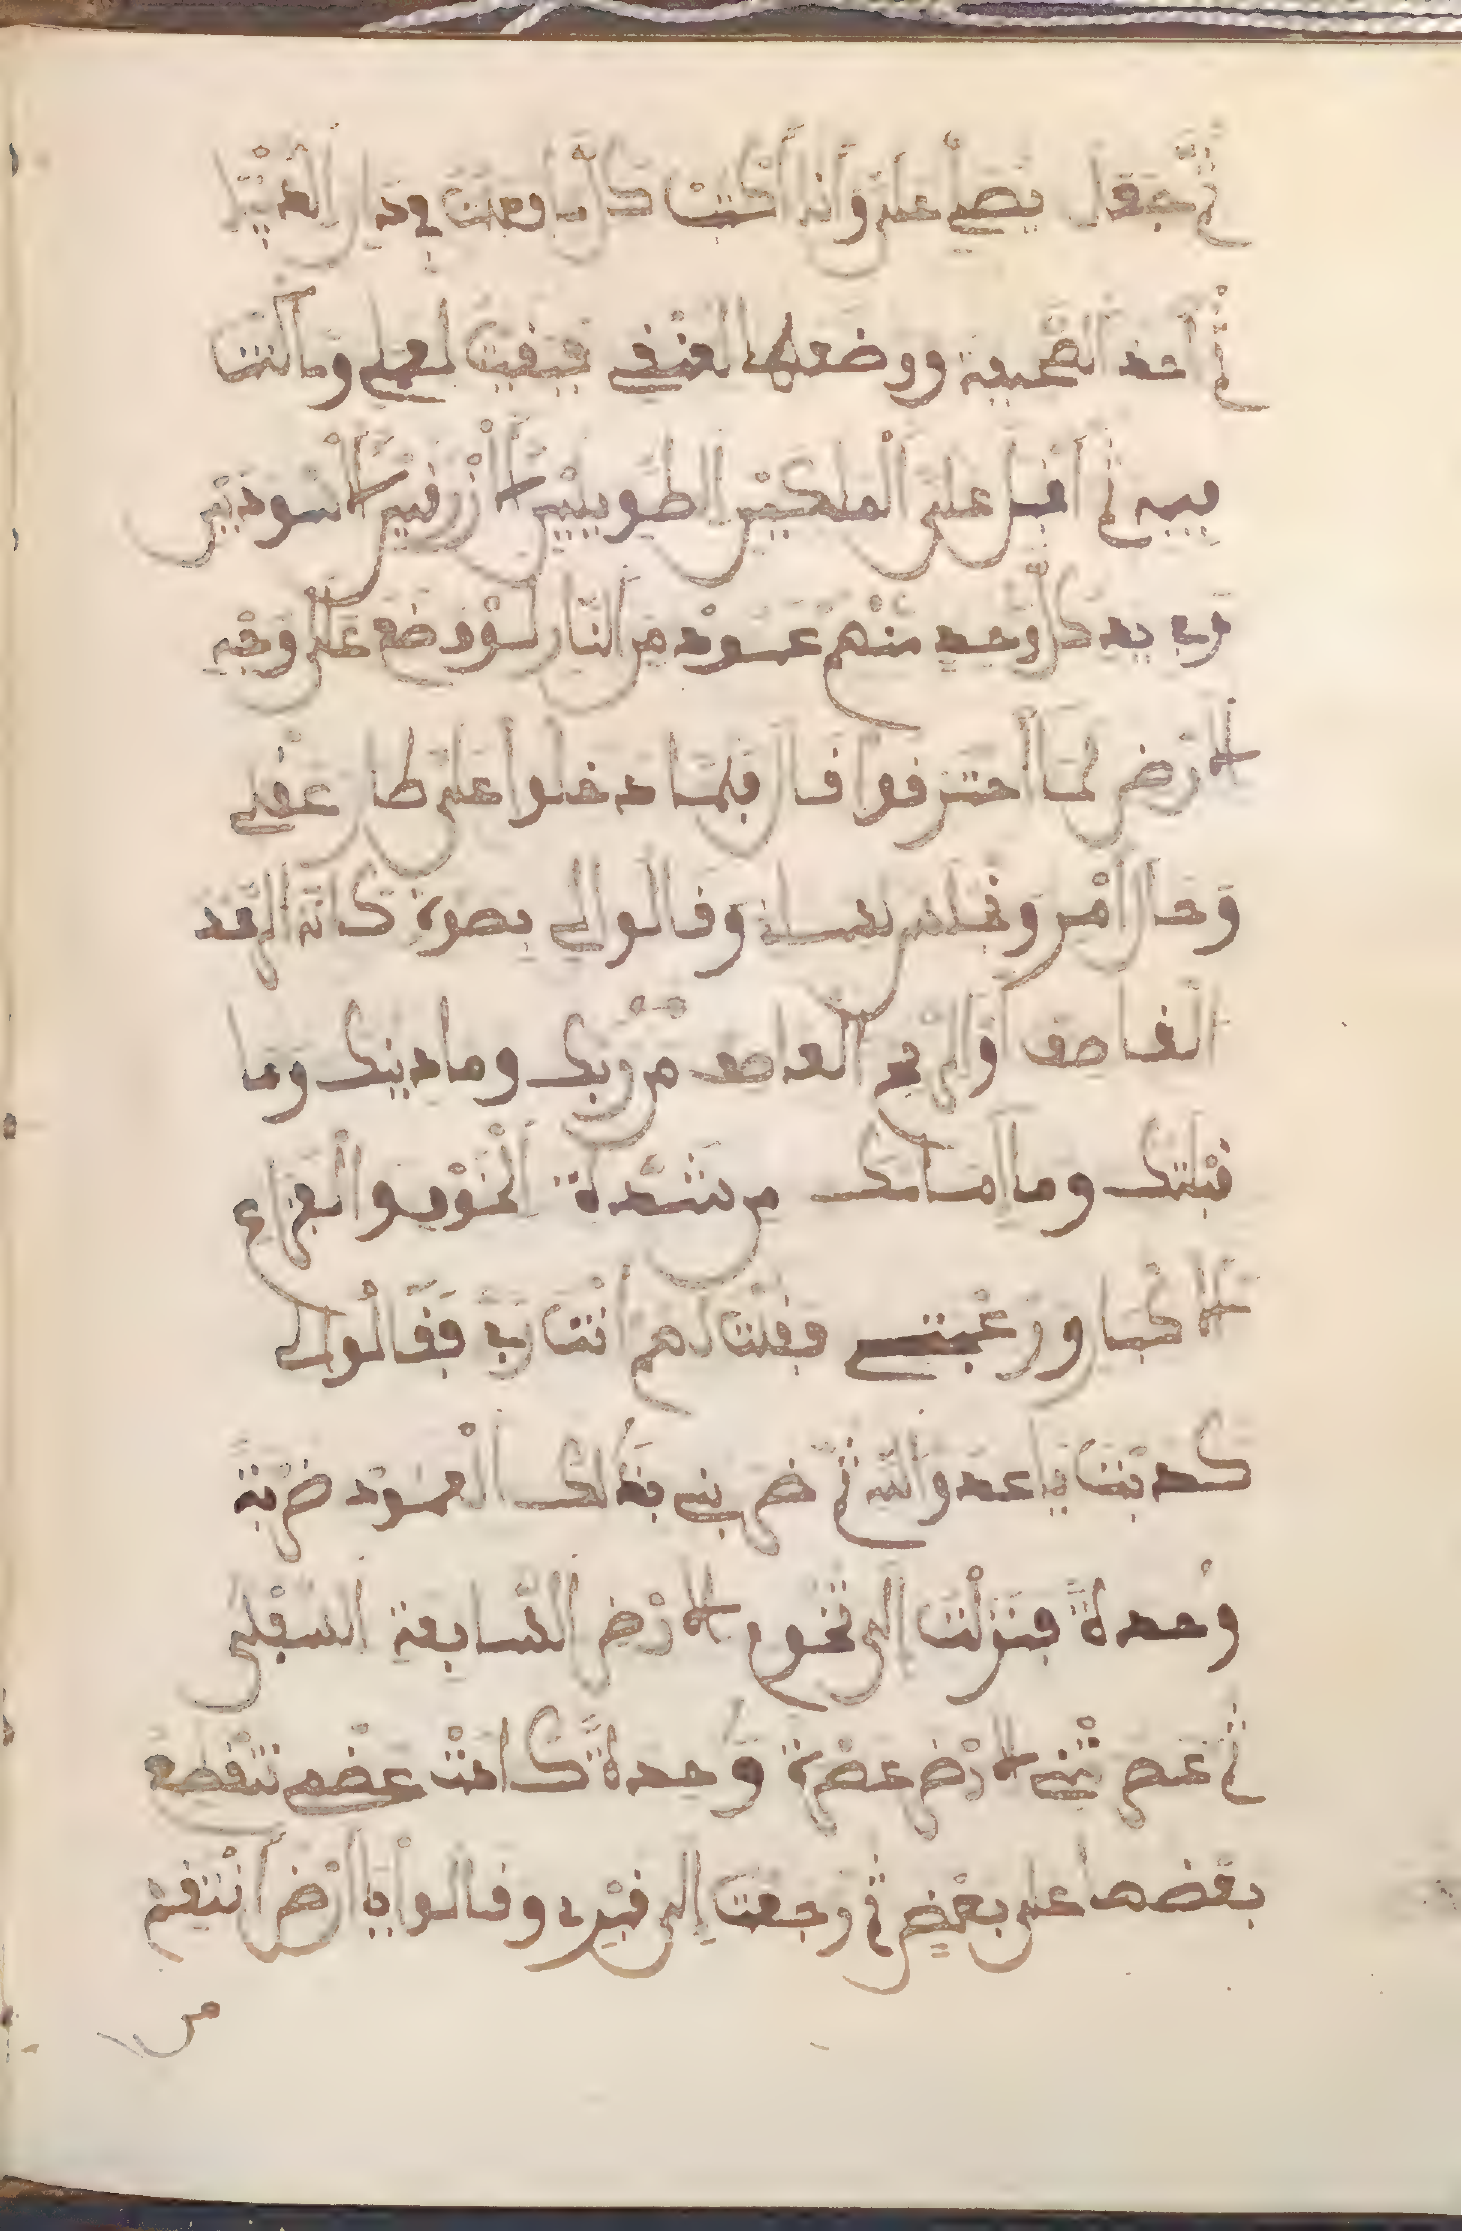 ثم جعل يصلي علي وأنا أكتب كل ما وعت في دار الدنيا
ثم أخذ الصحيفة ووضعها لعنفي فبقيت لعملي وما كنت
فيه ثم أقبل علي الملكين الطويلين الأزرقين الأسودين
وفي يد كل وحد منهم عمود من النار لو وضع على وجه
الأرض لما احترقوا قال فلما دخلوا علي طار عقلي
وحار أمر وثقلت لسان وقالوا لي بصوت كأنه الرعد
القاصف أو الريح العاصف من ربك وما دينك وما
قبلتك وما امامك من شدة الخوف والفزع
ورغبتي فقلت لهم أنت رب فقالوا لي
كذبت يا عدو الله ثم ضربني بذلك العمود ضربة
وحدة فنزلت إلى تخوم الأرض السابعة السفلى
ثم عصرتني الأرض عصرة وحدة كادت عضم تنقطع
بعضها على بعض ثم رجعت إلى قبر وقالوا يا أرض انتقم
من